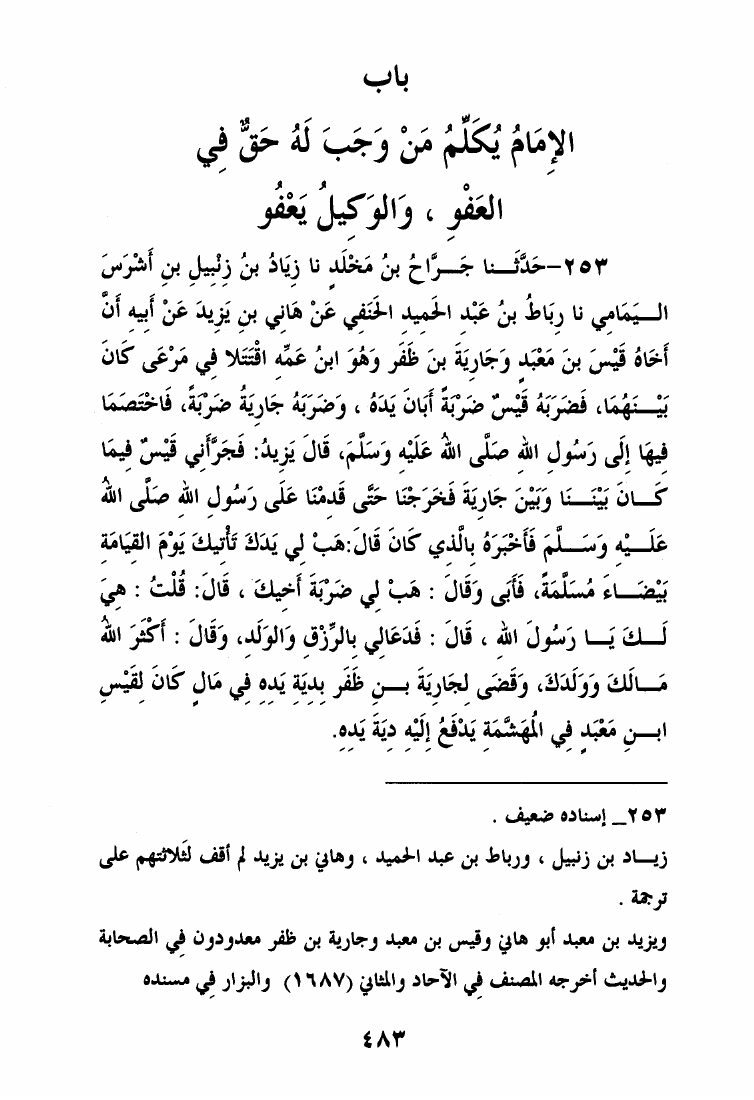 باب
الإِمَامُ يُكَلِّمُ مَنْ وَجَبَ لَهُ حَقٌّ فِي
العَفْوِ ، وَالوَكِيلُ يَعْفُو
٢٥٣-حَدَّثَـــنا جَـــرَّاحُ بنُ مَخْلَدٍ نا زِيَادُ بنُ زِنْبِيلِ بنِ أَشْرَسَ
الـــيَمَامِي نا رِبَاطُ بنُ عَبْدِ الحَمِيدِ الحَنَفِي عَنْ هَانِي بنِ يَزِيدَ عَنْ أَبِيهِ أَنَّ
أَخَاهُ قَيْسَ بنَ مَعْبَدٍ وَجَارِيَةَ بنَ ظَفَرٍ وَهُوَ ابنُ عَمِّهِ اقْتَتَلا فِي مَرْعَى كَانَ
بَيْـــنَهُمَا، فَضَرَبَهُ قَيْسٌ ضَرْبَةً أَبَانَ يَدَهُ ، وَضَرَبَهُ جَارِيَةُ ضَرْبَةً، فَاخْتَصَمَا
فِيهَا إِلَى رَسُولِ اللهِ صَلَّى اللهُ عَلَيْهِ وَسَلَّمَ، قَالَ يَزِيدُ: فَجَرَّأَنِي قَيْسٌ فِيمَا
كَـــانَ بَيْنَـــنَا وَبَيْنَ جَارِيَةَ فَخَرَجْنَا حَتَّى قَدِمْنَا عَلَى رَسُولِ اللهِ صَلَّى اللهُ
عَلَـــيْهِ وَسَـــلَّمَ فَأَخْبَرَهُ بِالَّذِي كَانَ قَالَ:هَبْ لِي يَدَكَ تَأْتِيكَ يَوْمَ القِيَامَةِ
بَيْضَـــاءَ مُسَلَّمَةً، فَأَبَى وَقَالَ : هَبْ لِي ضَرْبَةَ أَخِيكَ ، قَالَ: قُلْتُ : هِيَ
لَـــكَ يَـــا رَسُولَ اللهِ ، قَالَ : فَدَعَالِي بِالرِّزْقِ وَالوَلَدِ، وَقَالَ : أَكْثَرَ اللهُ
مَـــالَكَ وَوَلَدَكَ، وَقَضَى لِجَارِيَةَ بـــنِ ظَفَرٍ بِدِيَةِ يَدِهِ فِي مَالٍ كَانَ لِقَيْسِ
ابـــنِ مَعْبَدٍ فِي المُهَشَّمَةِ يَدْفَعُ إِلَيْهِ دِيَةَ يَدِهِ.
٢٥٣_ إسناده ضعيف .
زيـــاد بن زنبيل ، ورباط بن عبد الحميد ، وهانئ بن يزيد لم أقف لثلاثتهم على
ترجمة .
ويزيد بن معبد أبو هانئ وقيس بن معبد وجارية بن ظفر معدودون في الصحابة
والحديث أخرجه المصنف في الآحاد والمثاني (١٦٨٧) والبزار في مسنده
٤٨٣